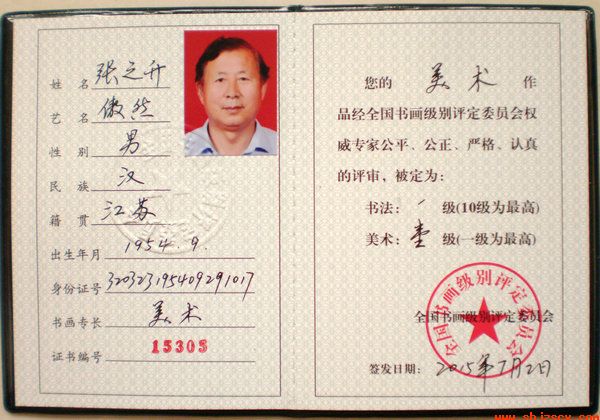 姓名 张之升
艺名 傲然
性别 男
民族 汉
籍贯 江苏
出生年月 1954.9.
身份证号 320323195409291017
书画专长 美术
证书编号 15305
您的 美术 作
品经全国书画级别评定委员会权
威专家公平、公正、严格、认真
的评审，被定为：
书法： 级(10级为最高)
美术：壹 级(一级为最高)
全国书画级别评定委员会
全国书画级别评定委员会
签发日期：2015年7月2日